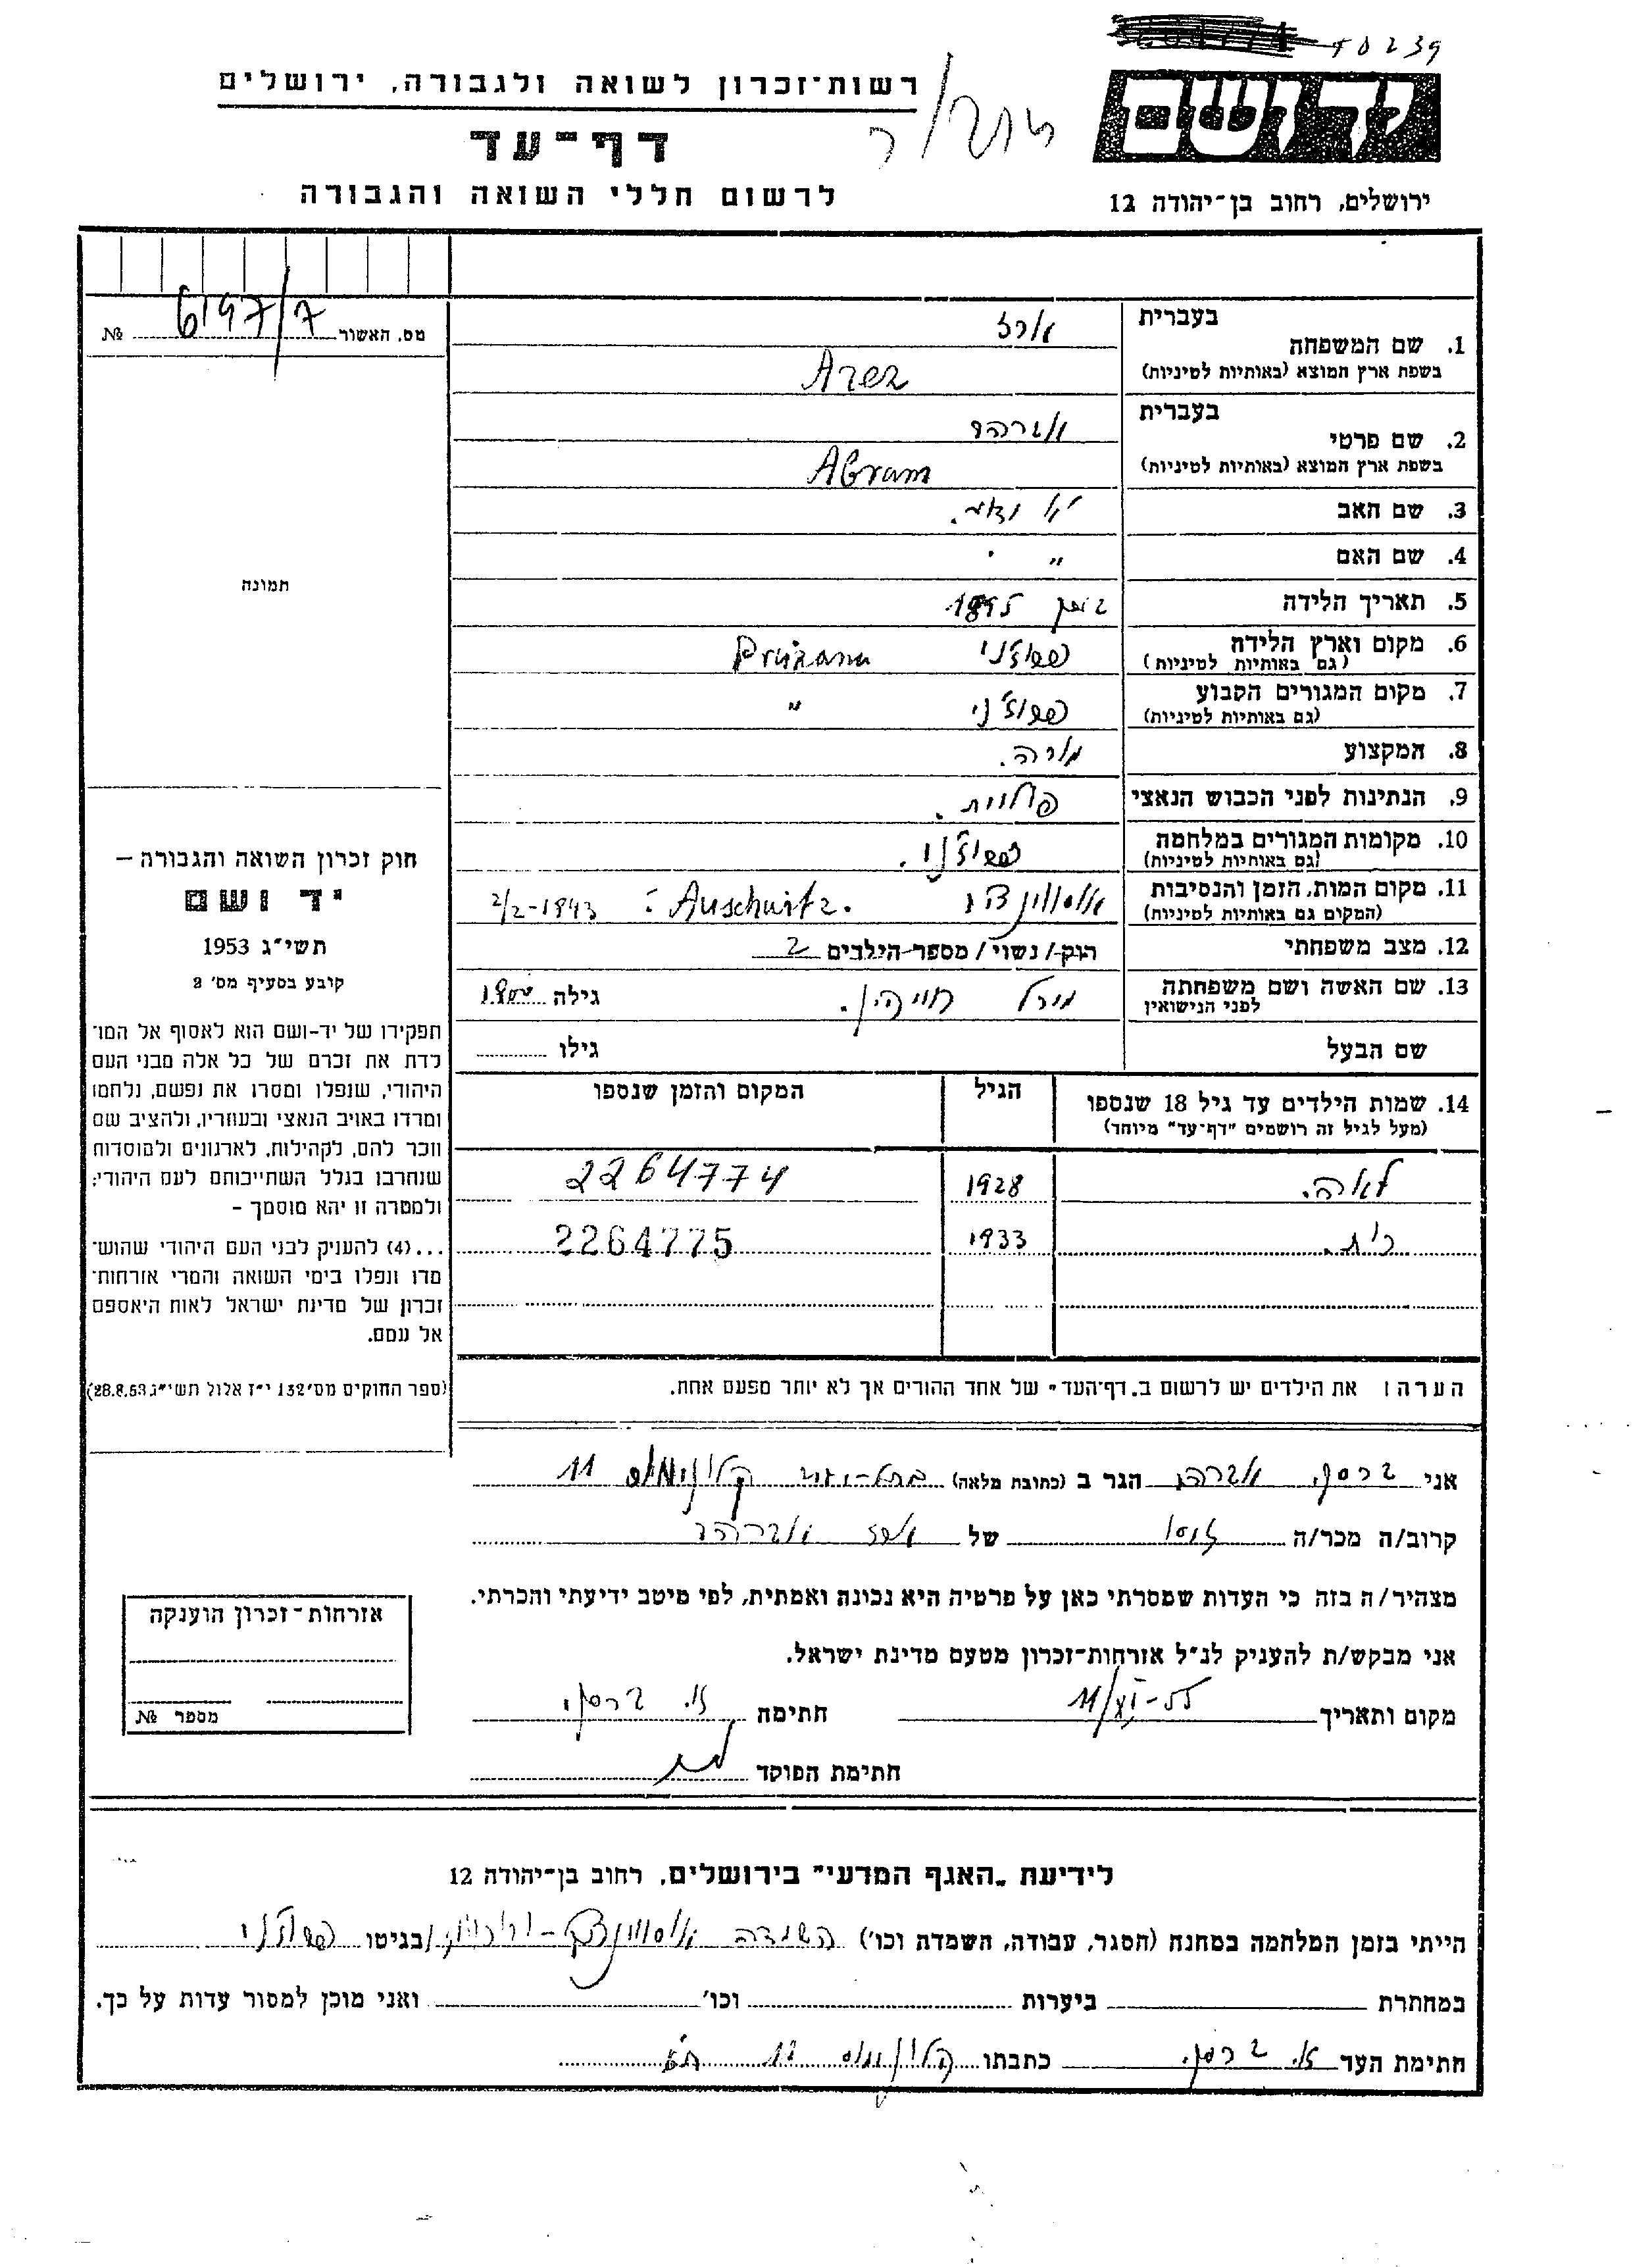 40239
רשות־זכרון לשואה ולגבורה, ירושלים
דף־עד
לרשום חללי השואה והגבורה
יד ושם
ירושלים, רחוב בן־יהודה 12
מס. האשור 6197/7 №
תמונה
בעברית
1. שם המשפחה ארז
בשפת ארץ המוצא (באותיות לטיניות) Arez
בעברית
2. שם פרטי אברהם
בשפת ארץ המוצא (באותיות לטיניות) Abram
3. שם האב
4. שם האם "
5. תאריך הלידה 1895
6. מקום וארץ הלידה פרוז'ני Pružana
(גם באותיות לטיניות)
7. מקום המגורים הקבוע פרוז'ני "
(גם באותיות לטיניות)
8. המקצוע מורה.
9. הנתינות לפני הכבוש הנאצי פולנית.
10. מקומות המגורים במלחמה פרוז'ני.
(גם באותיות לטיניות)
11. מקום המות, הזמן והנסיבות Auschwitz. 2/2-1943
(המקום גם באותיות לטיניות)
12. מצב משפחתי רוק / נשוי / מספר הילדים 2
13. שם האשה ושם משפחתה גילה 1900
לפני הנישואין
שם הבעל גילו
14. שמות הילדים עד גיל 18 שנספו הגיל המקום והזמן שנספו
(מעל לגיל זה רושמים "דף־עד" מיוחד)
לאה. 1928 2264774
רות. 1933 2264775
הערה: את הילדים יש לרשום ב„דף־העד" של אחד ההורים אך לא יותר מפעם אחת.
חוק זכרון השואה והגבורה –
יד ושם
תשי"ג 1953
קובע בסעיף מס' 2
תפקידו של יד-ושם הוא לאסוף אל המו־
לדת את זכרם של כל אלה מבני העם
היהודי, שנפלו ומסרו את נפשם, נלחמו
ומרדו באויב הנאצי ובעוזריו, ולהציב שם
וזכר להם, לקהילות, לארגונים ולמוסדות
שנחרבו בגלל השתייכותם לעם היהודי;
ולמטרה זו יהא מוסמך –
...(4) להעניק לבני העם היהודי שהוש־
מדו ונפלו בימי השואה והמרי אזרחות־
זכרון של מדינת ישראל לאות היאספם
אל עמם.
(ספר החוקים מס' 132 י"ז אלול תשי"ג 28.8.53)
אני ברסקי אברהם הגר ב (כתובת מלאה) 11
קרוב/ה מכר/ה של ארז אברהם
מצהיר/ה בזה כי העדות שמסרתי כאן על פרטיה היא נכונה ואמתית, לפי מיטב ידיעתי והכרתי.
אני מבקש/ת להעניק לנ"ל אזרחות־זכרון מטעם מדינת ישראל.
מקום ותאריך חתימה א. ברסקי
חתימת הפוקד
אזרחות־זכרון הוענקה
מספר №
לידיעת „האגף המדעי" בירושלים, רחוב בן־יהודה 12
הייתי בזמן המלחמה במחנה (הסגר, עבודה, השמדה וכו') השמדה /בגיטו פרוז'ני
במחתרת ביערות וכו' ואני מוכן למסור עדות על כך.
חתימת העד א. ברסקי כתבתו